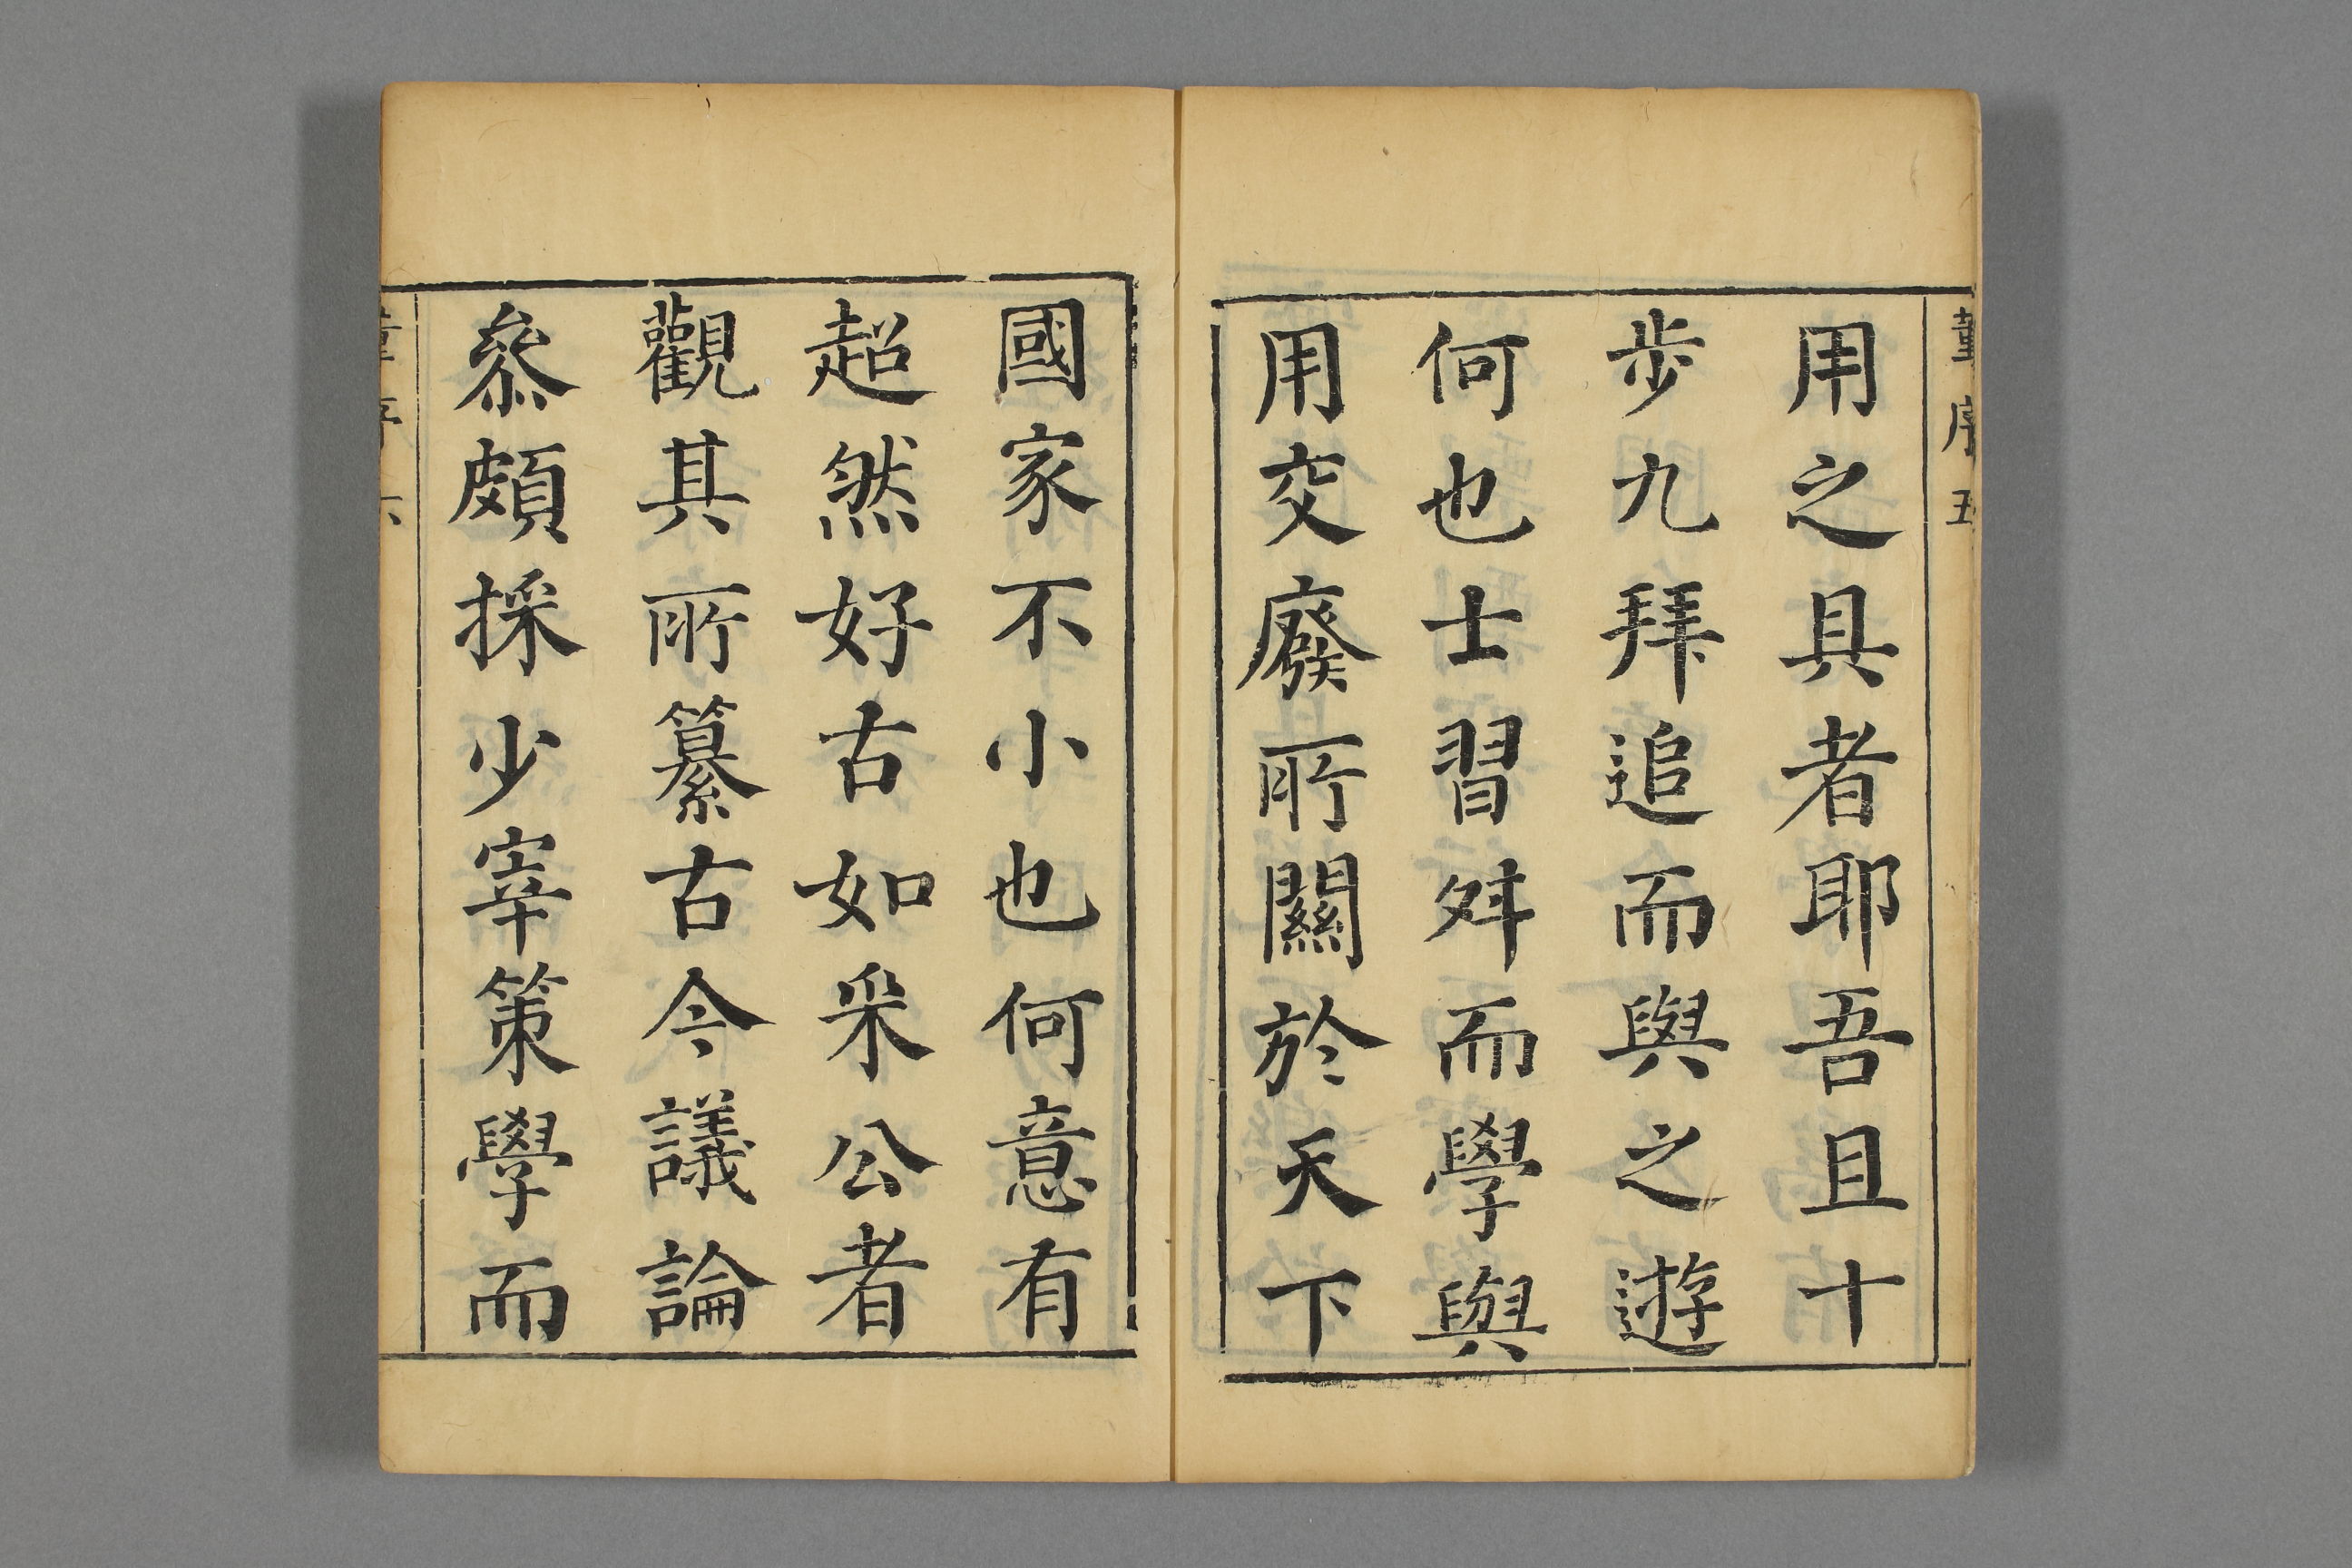 用之具者耶吾且十
步九拜追而與之遊
何也士習舛而學與
用交廢所關於天下
國家不小也何意有
超然好古如采公者
觀其所纂古今議論
叅頗採少宰策學而